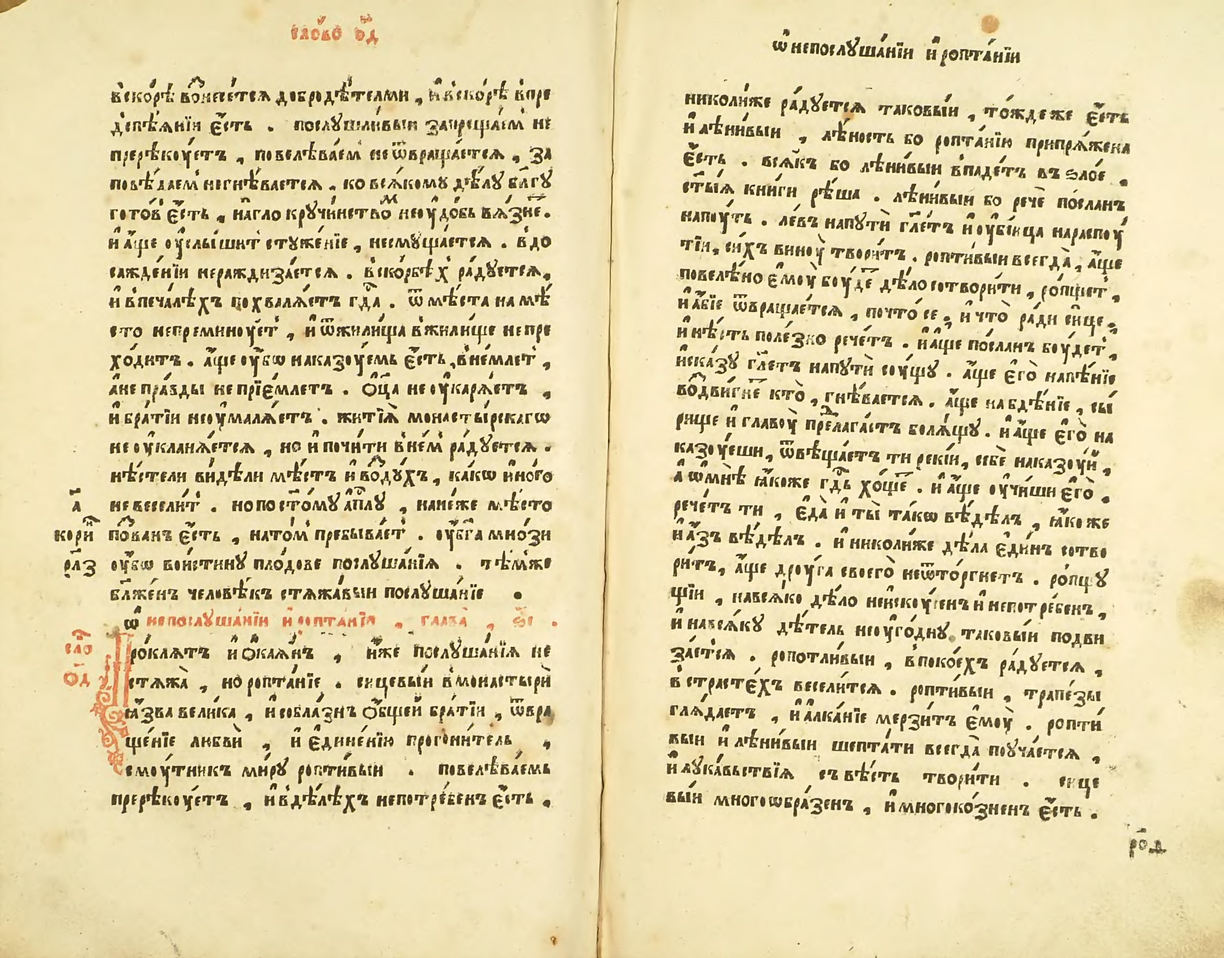 сло́во о҃д
вско́рѣ во́несе́тсѧ добродѣ́телми , и҆ вско́рѣ впре
дспѣѧ́нїи є҆́сть . послушли́выи запреща́ем не
прерѣкꙋ́етъ , повелѣва́ем не ѿвраща́етсѧ , за
повѣ́даем негнѣ́ваетсѧ . ко всѧ́кому дѣ́лу бл҃гу
гото́в є҆́сть , на́гло кручи́нство́м неоу҆до́бь вѧ́зне .
и҆ а҆́ще оу҆слы́шит стуже́нїе , несмуща́етсѧ . вдо
сажде́нїи неражди́за́етсѧ . вско́рбѣх ра́дуетсѧ ,
и҆ впеча́лѣхъ похвалѧ́етъ гд҃а . ѿ мѣ́ста на мѣ́
сто непремину́ет , и҆ ѿжили́ща вжили́ще не пре
хо́дитъ . а҆́ще оу҆́бѡ наказу́емь є҆́сть , вне́млет ,
а҆не пра́зды не прїе́млетъ . ѻ҆ц҃а не оу҆карѧ́етъ ,
и҆ бра́тїи неоу҆малѧ́етъ . житїѧ̀ монасты́рскагѡ
не оу҆кланѧ́етсѧ , но и҆ почи́ти вне́м ра́дуетсѧ .
нѣ́стели ви́дѣли мѣ́стъ и҆ во́дꙋхъ , ка́кѡ и҆но́го
не весели́т . но по ст҃о́му а҆п҃лу , нане́же мѣ́сто
а҃
кори
раз
по́ванъ є҆́сть , нато́м пребыва́ет . оу҆́бѓа мно́зи
оу҆́бѡ вои́стину пло́дове послуша́нїѧ . тѣ́мже
бл҃же́нъ человѣ́къ стѧжа́выи послуша́нїе .
ѡ҆ непослуша́нїи и҆ ропта́нїи , глава̀ , о҃е .
сло
о҃д
Про́клѧтъ и҆ ѻ҆каѧ́нъ , и҆́же послуша́нїѧ не
стѧжа̀ , но ропта́нїе . сицевы́и вмонастырѝ
ꙗ҆́зва вели́ка , и҆ собла́знъ ѻ҆́бщей бра́тїи , ѿвра
ще́нїе любвѝ , и҆ є҆дине́нїю прогони́тель ,
смоу́тникъ ми́ру ропти́выи . повелѣва́емь
прерѣкꙋ́етъ , и҆ вдѣ́лѣхъ непотре́бенъ є҆́сть ,
ѡ҆ непослуша́нїи и҆ ропта́нїи
николи́же ра́дуетсѧ таковы́и , то́ждеже є҆́сть
и҆ лѣни́выи , лѣ́ность бо ропта́нїю припрѧ́жена
є҆́сть . всѧ́къ бо лѣни́выи впаде́тъ въ ѕло́е .
ст҃ы́ѧ кни́ги рѣ́ша . лѣни́выи бо речѐ по́сланъ
напоу́ть . ле́въ напутѝ гл҃етъ и҆ оу҆бі́ица нараспоу́
тїи , си́хъ виноу̀ твори́тъ . ропти́выи всегда̀ , а҆́ще
повеле́но є҆моу̀ боу́де дѣ́ло сотвори́ти , ро́пщет ,
и҆ а҆́бїе ѿвраща́етсѧ , почто̀ се , и҆ что̀ ра́ди си́це ,
и҆ нѣ́сть поле́зно рече́тъ . и҆ а҆́ще по́сланъ боу́дет ,
и҆ска́зу гл҃етъ напутѝ соу́щу . а҆́ще є҆го̀ напѣ́нїе
во́двигне кто̀ , гнѣ́ваетсѧ . а҆́ще на бдѣ́нїе , сы́
рище и҆ главоу̀ предлага́етъ болѧ́щу . и҆ а҆́ще є҆го̀ на
казу́еши , ѿвѣща́етъ ти рекі́и , себѐ наказу́й ,
а҆ ѡ҆ мнѣ̀ ꙗ҆́коже гд҃ь хо́ще . и҆ а҆́ще оу҆чи́ши є҆го̀ .
рече́тъ ти , є҆да̀ и҆ ты̀ та́кѡ вѣ́дѣлъ , ꙗ҆́ко же
и҆ а҆́зъ вѣ́дѣлъ . и҆ николи́же дѣ́ла є҆ди́нъ сотво
ри́тъ , а҆́ще дрꙋ́га своего̀ не ѿто́ргнетъ . ро́пщу
щїи , навсѧ́ко дѣ́ло неискꙋ́сенъ и҆ непотре́бенъ ,
и҆ на всѧ́ку дѣ́тель неоуго́дну таковы́и подви
за́етсѧ . ропотли́выи , впоко́ехъ ра́дуетсѧ ,
в страсте́хъ весели́тсѧ . ропти́выи , трапе́зы
глѧ́даетъ , и҆ а҆лка́нїе мерзи́тъ є҆моу̀ . ропти́
выи и҆ лѣни́выи шепта́ти всегда̀ поуча́етсѧ ,
и҆ лука́вьствїѧ съвѣ́сть твори́ти . сице
вы́и многоѡбра́зенъ , и҆ многоко́зненъ є҆́сть .
ро́д